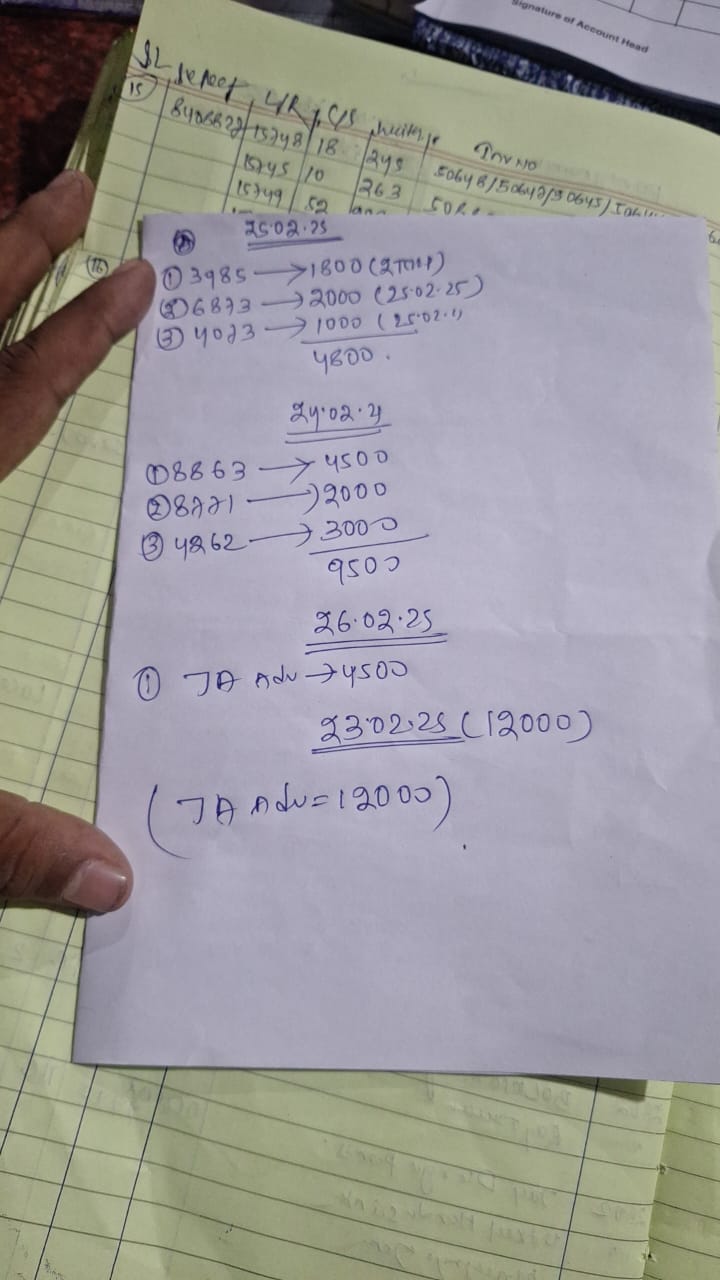 Signature of Account Head
SL
15 8408827 15748 18 245 50648/50647/50645/
15745 10 263
15749 52
16
25.02.25
① 3985 → 1800 (2 TRIP)
② 6873 → 2000 (25.02.25)
③ 4073 → 1000 (25.02.
4800.
24.02.2
① 8863 → 4500
② 8771 → 2000
③ 4262 → 3000
9500
26.02.25
① JA Adv → 4500
23.02.25 (12000)
(JA Adv = 12000)